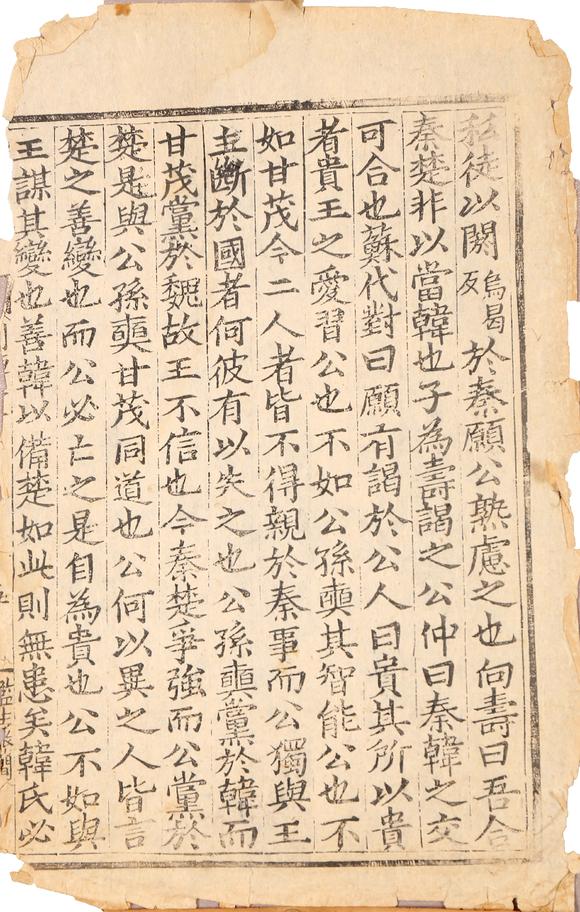 私徒以閼烏曷反於秦願公熟慮之也向壽曰吾合
秦楚非以當韓也子為壽謁之公仲曰秦韓之交
可合也蘇代對曰願有謁於公人曰貴其所以貴
者貴王之愛習公也不如公孫奭其智能公也不
如甘茂今二人者皆不得親於秦事而公獨與王
主斷於國者何彼有以失之也公孫奭黨於韓而
甘茂黨於魏故王不信也今秦楚爭強而公黨於
楚是與公孫奭甘茂同道也公何以異之人皆言
楚之善變也而公必亡之是自為貴也公不如與
王謀其變也善韓以備楚如此則無患矣韓氏必